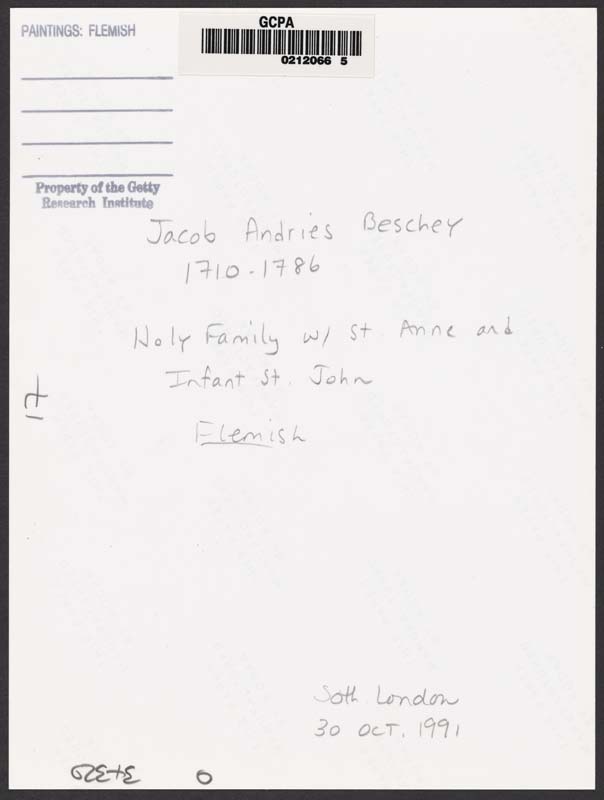 PAINTINGS: FLEMISH
GCPA
0212066 5
Property of the Getty
Research Institute
Jacob Andries Beschey
1710-1786
Holy Family w/ St Anne and
Infant St. John
Flemish
17
Soth London
30 OCT. 1991